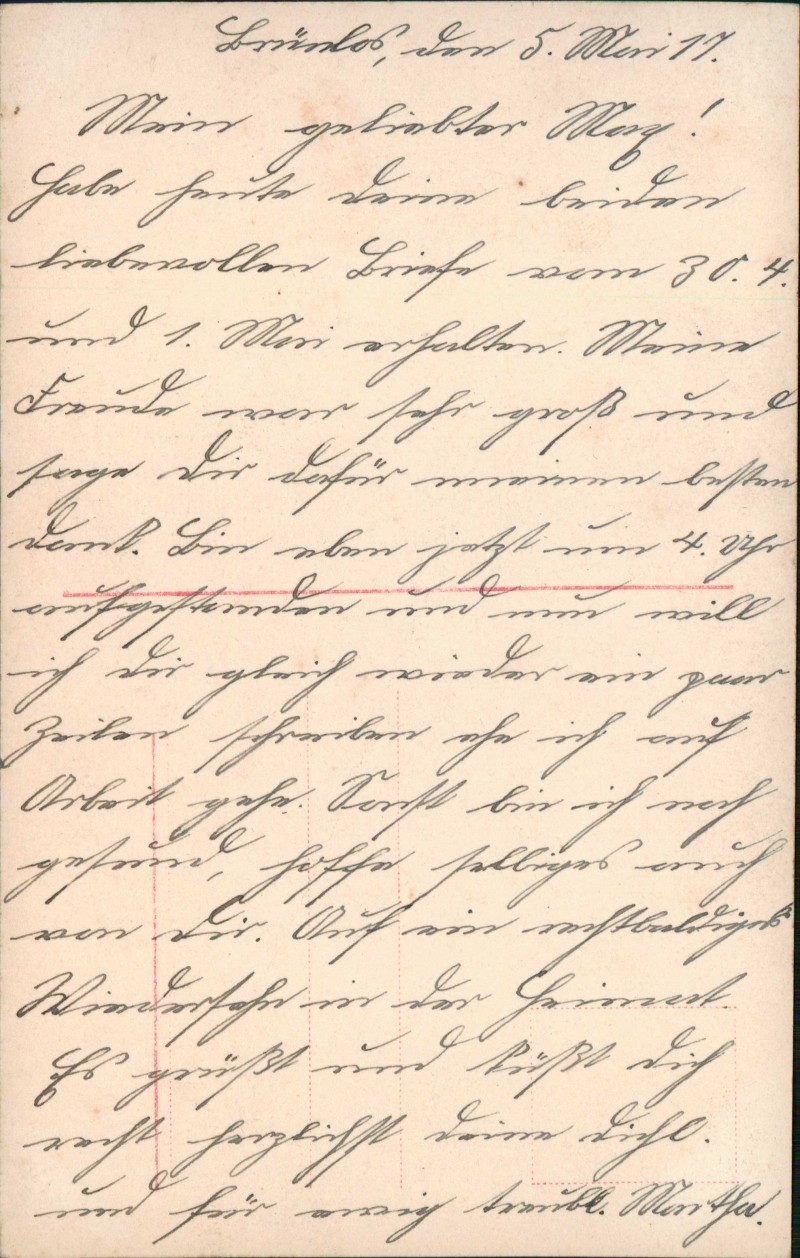 Brünlos, den 5. Mai 17.
Mein geliebter Max!
Habe heute deine beiden
liebevollen Briefe vom 30. 4.
und 1. Mai erhalten. Meine
Freude war sehr groß und
sage dir dafür meinen besten
dank. Bin eben jetzt um 4. Uhr
aufgestanden und nun will
ich dir gleich wieder ein paar
Zeilen schreiben ehe ich auf
Arbeit gehe. Sonst bin ich noch
gesund, hoffe selbiges auch
von dir. Auf ein rechtbaldiges
Wiedersehn in der Heimat.
Es grüßt und küßt dich
recht herzlichst deine dichl.
und für ewig treubl. Martha.